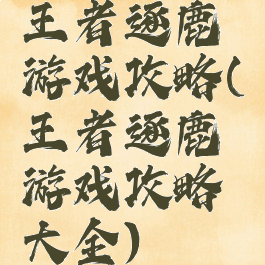 王者逐鹿
游戏攻略(
王者逐鹿
游戏攻略
大全)